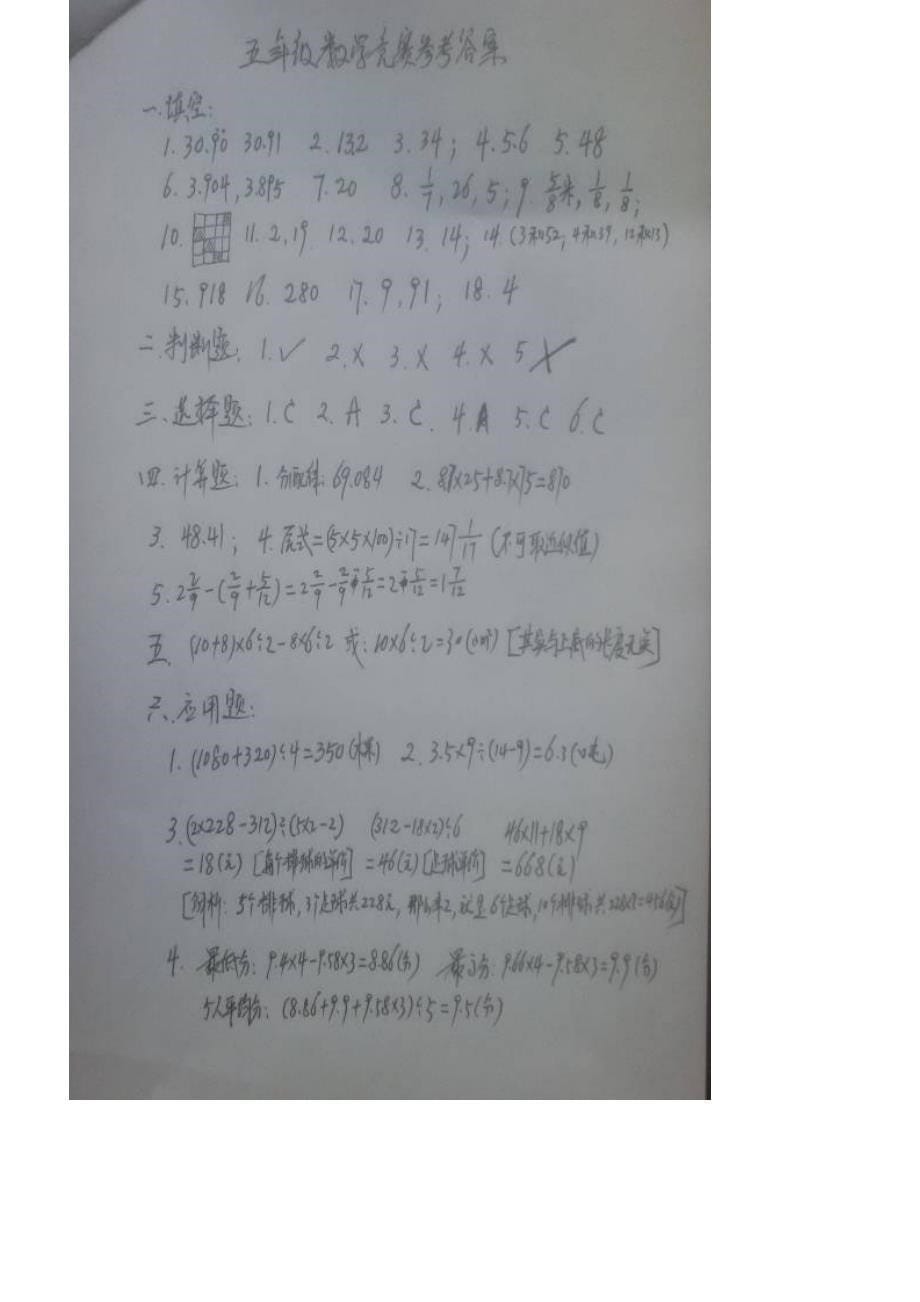 五年级数学竞赛参考答案
一.填空:
1. 30.90 30.91 2. 132 3. 34; 4. 5.6 5. 48
6. 3.904, 3.895 7. 20 8. 1/7, 26, 5; 9. 5/8米, 1/8, 1/8;
10. 11. 2, 19 12. 20 13. 14; 14. (3和52, 4和39, 12和13)
15. 918 16. 280 17. 9, 91; 18. 4
二.判断题: 1.✓ 2.× 3.× 4.× 5 ×
三.选择题: 1.C 2.A 3.C. 4.A 5.C 6.C
四.计算题: 1. 分配律: 69.084 2. 8.7×25+8.7×75=870
3. 48.41; 4. 原式=(5×5×100)÷17=147 1/17 (不可取近似值)
5. 2 2/9-(2/9+5/12)=2 2/9-2/9-5/12=2-5/12=1 7/12
五. (10+8)×6÷2-8×6÷2 或: 10×6÷2=30 [其实与上底的长度无关]
六.应用题:
1. (1080+320)÷4=350(棵) 2. 3.5×9÷(14-9)=6.3(吨)
3. (2×228-312)÷(5×2-2) (312-18×2)÷6 46×11+18×9
=18(元) [每个排球的单价] =46(元) [足球单价] =668(元)
[剖析: 5个排球, 3个足球共228元, 那么乘2, 这是6个足球, 10个排球共228×2=456(元)]
4. 最低分: 9.4×4-9.58×3=8.86(分) 最高分: 9.66×4-9.58×3=9.9(分)
5人平均分: (8.86+9.9+9.58×3)÷5=9.5(分)